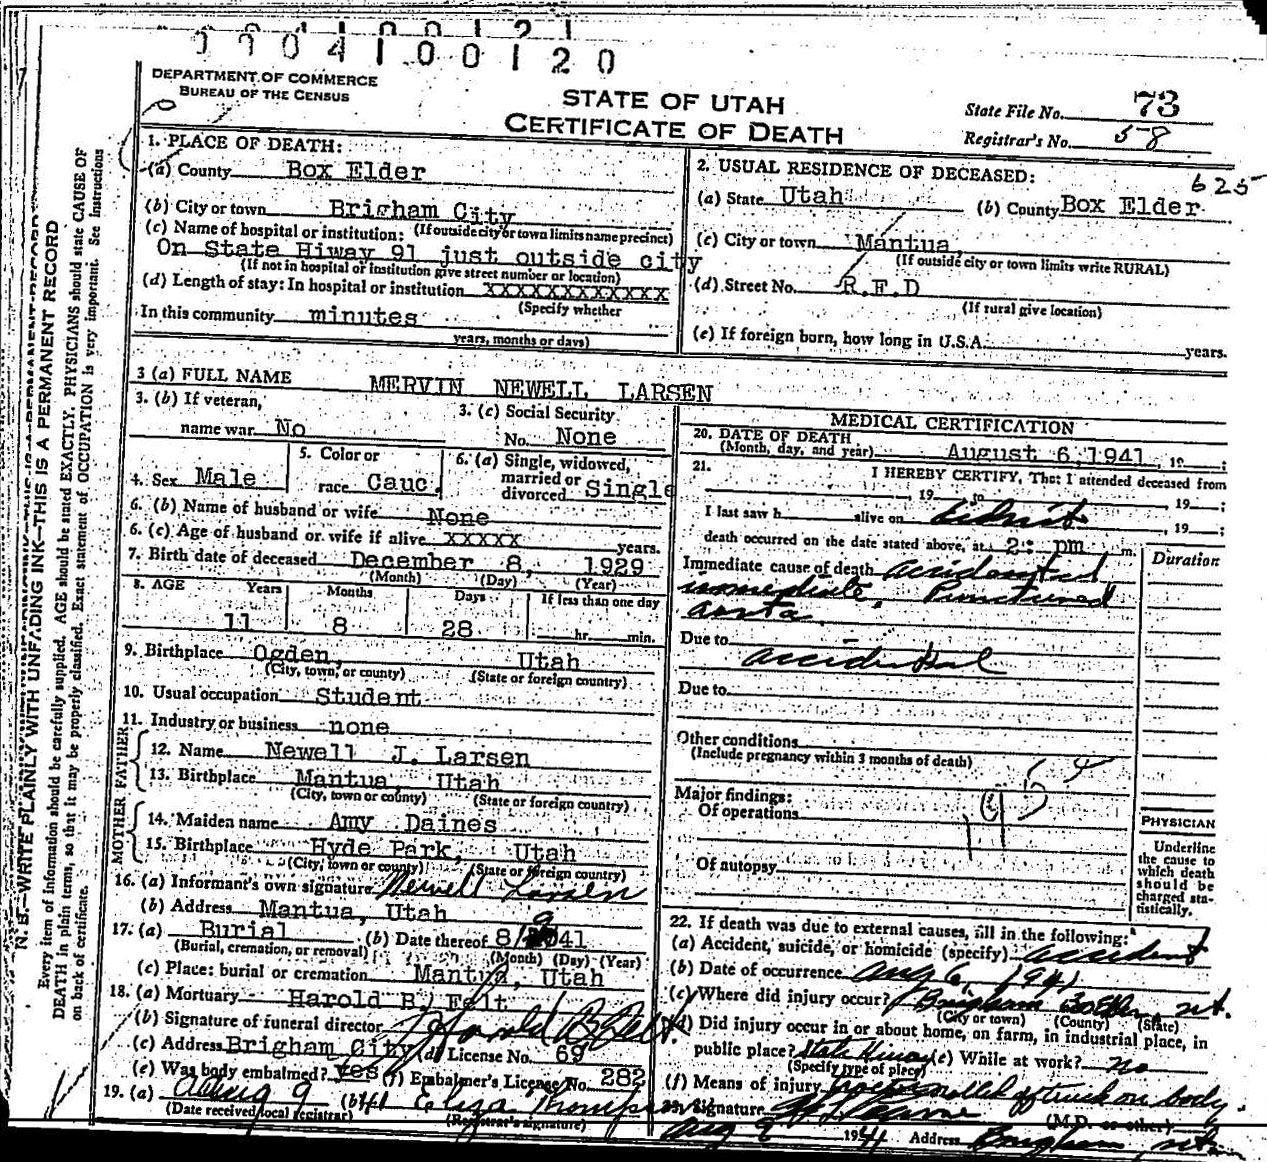 0 9 0 4 1 0 0 1 2 1
0 9 0 4 1 0 0 1 2 0
DEPARTMENT OF COMMERCE
BUREAU OF THE CENSUS
STATE OF UTAH
CERTIFICATE OF DEATH
State File No. 73
Registrar's No. 58
625
N. B.—WRITE PLAINLY WITH UNFADING INK—THIS IS A PERMANENT RECORD
Every item of information should be carefully supplied. AGE should be stated EXACTLY. PHYSICIANS should state CAUSE OF
DEATH in plain terms, so that it may be properly classified. Exact statement of OCCUPATION is very important. See instructions
on back of certificate.
1. PLACE OF DEATH:
(a) County Box Elder
(b) City or town Brigham City
(If outside city or town limits name precinct)
(c) Name of hospital or institution:
On State Hiway 91 just outside city
(If not in hospital or institution give street number or location)
(d) Length of stay: In hospital or institution xxxxxxxxxxxx
(Specify whether
In this community minutes
years, months or days)
2. USUAL RESIDENCE OF DECEASED:
(a) State Utah (b) County Box Elder
(c) City or town Mantua,
(If outside city or town limits write RURAL)
(d) Street No. R.F.D
(If rural give location)
(e) If foreign born, how long in U.S.A. years.
3 (a) FULL NAME MERVIN NEWELL LARSEN
3. (b) If veteran,
name war No
3. (c) Social Security
No. None
4. Sex Male
5. Color or
race Cauc.
6. (a) Single, widowed,
married or
divorced Single
6. (b) Name of husband or wife None
6. (c) Age of husband or wife if alive xxxxx years.
7. Birth date of deceased December 8, 1929
(Month) (Day) (Year)
8. AGE Years Months Days If less than one day
11 8 28 hr. min.
9. Birthplace Ogden, Utah
(City, town, or county) (State or foreign country)
10. Usual occupation Student
11. Industry or business none
FATHER
12. Name Newell J. Larsen
13. Birthplace Mantua, Utah
(City, town or county) (State or foreign country)
MOTHER
14. Maiden name Amy Daines
15. Birthplace Hyde Park, Utah
(City, town or county) (State or foreign country)
16. (a) Informant's own signature Newell Larsen
(b) Address Mantua, Utah
17. (a) Burial (b) Date thereof 8/9 41
(Burial, cremation, or removal) (Month) (Day) (Year)
(c) Place: burial or cremation Mantua, Utah
18. (a) Mortuary Harold B. Felt
(b) Signature of funeral director Harold B. Felt
(c) Address Brigham City (d) License No. 69
(e) Was body embalmed? yes (f) Embalmer's License No. 282
19. (a) Aug 9 (b) Eliza Thompson
(Date received local registrar) (Registrar's signature)
MEDICAL CERTIFICATION
20. DATE OF DEATH
(Month, day, and year) August 6, 1941, 19 ;
21. I HEREBY CERTIFY, That I attended deceased from
, 19 to , 19 ;
I last saw h alive on did not , 19 ;
death occurred on the date stated above, at 2: pm m.
Duration
Immediate cause of death accidental
immediate. Punctured
aorta
Due to accidental
Due to
Other conditions
(Include pregnancy within 3 months of death)
Major findings:
Of operations
Of autopsy
PHYSICIAN
Underline
the cause to
which death
should be
charged sta-
tistically.
22. If death was due to external causes, fill in the following:
(a) Accident, suicide, or homicide (specify) accident
(b) Date of occurrence Aug 6 1941
(c) Where did injury occur? Brigham Box Elder Ut.
(City or town) (County) (State)
(d) Did injury occur in or about home, on farm, in industrial place, in
public place? State Hiway (e) While at work? no
(Specify type of place)
(f) Means of injury rolled off truck on body.
23. Signature
(M.D. or other)
Aug 9 1941 Address Brigham, Ut.